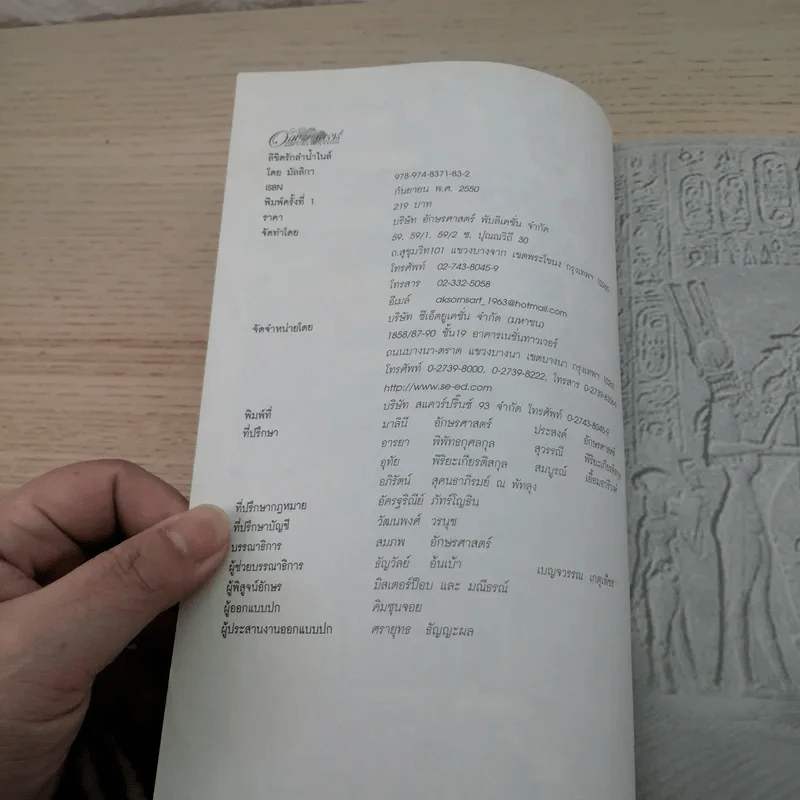 ลิขิตรักลำน้ำไนล์
โดย มัลลิกา
ISBN 978-974-8371-83-2
พิมพ์ครั้งที่ 1 กันยายน พ.ศ. 2550
ราคา 219 บาท
จัดทำโดย บริษัท อักษรศาสตร์ พับลิเคชั่น จำกัด
59, 59/1, 59/2 ซ. ปุณณวิถี 30
ถ.สุขุมวิท101 แขวงบางจาก เขตพระโขนง กรุงเทพฯ
โทรศัพท์ 02-743-8045-9
โทรสาร 02-332-5058
อีเมล์ aksornsart_1963@hotmail.com
จัดจำหน่ายโดย บริษัท ซีเอ็ดยูเคชั่น จำกัด (มหาชน)
1858/87-90 ชั้น19 อาคารเนชั่นทาวเวอร์
ถนนบางนา-ตราด แขวงบางนา เขตบางนา กรุงเทพฯ
โทรศัพท์ 0-2739-8000, 0-2739-8222, โทรสาร
http://www.se-ed.com
พิมพ์ที่ บริษัท สแควร์ปริ๊นซ์ 93 จำกัด โทรศัพท์ 0-2743-8045-9
ที่ปรึกษา มาลินี อักษรศาสตร์ ประสงค์ อักษรศาสตร์
อารยา พิพิทธกุศลกุล สุวรรณี
อุทัย พิริยะเกียรติสกุล สมบูรณ์ เอี้ยมอารีวงษ์
อภิรัตน์ สุคนธาภิรมย์ ณ พัทลุง
ที่ปรึกษากฎหมาย อัครฐริณีย์ ภัทร์โญธิน
ที่ปรึกษาบัญชี วัฒนพงศ์ วรนุช
บรรณาธิการ สมภพ อักษรศาสตร์
ผู้ช่วยบรรณาธิการ ธัญวัลย์ อ้นเบ้า เบญจวรรณ เกตุเพ็ชร
ผู้พิสูจน์อักษร มิสเตอร์ป๊อบ และ มณีธรณ์
ผู้ออกแบบปก คิมซุนจอย
ผู้ประสานงานออกแบบปก ศรายุทธ ธัญญะผล